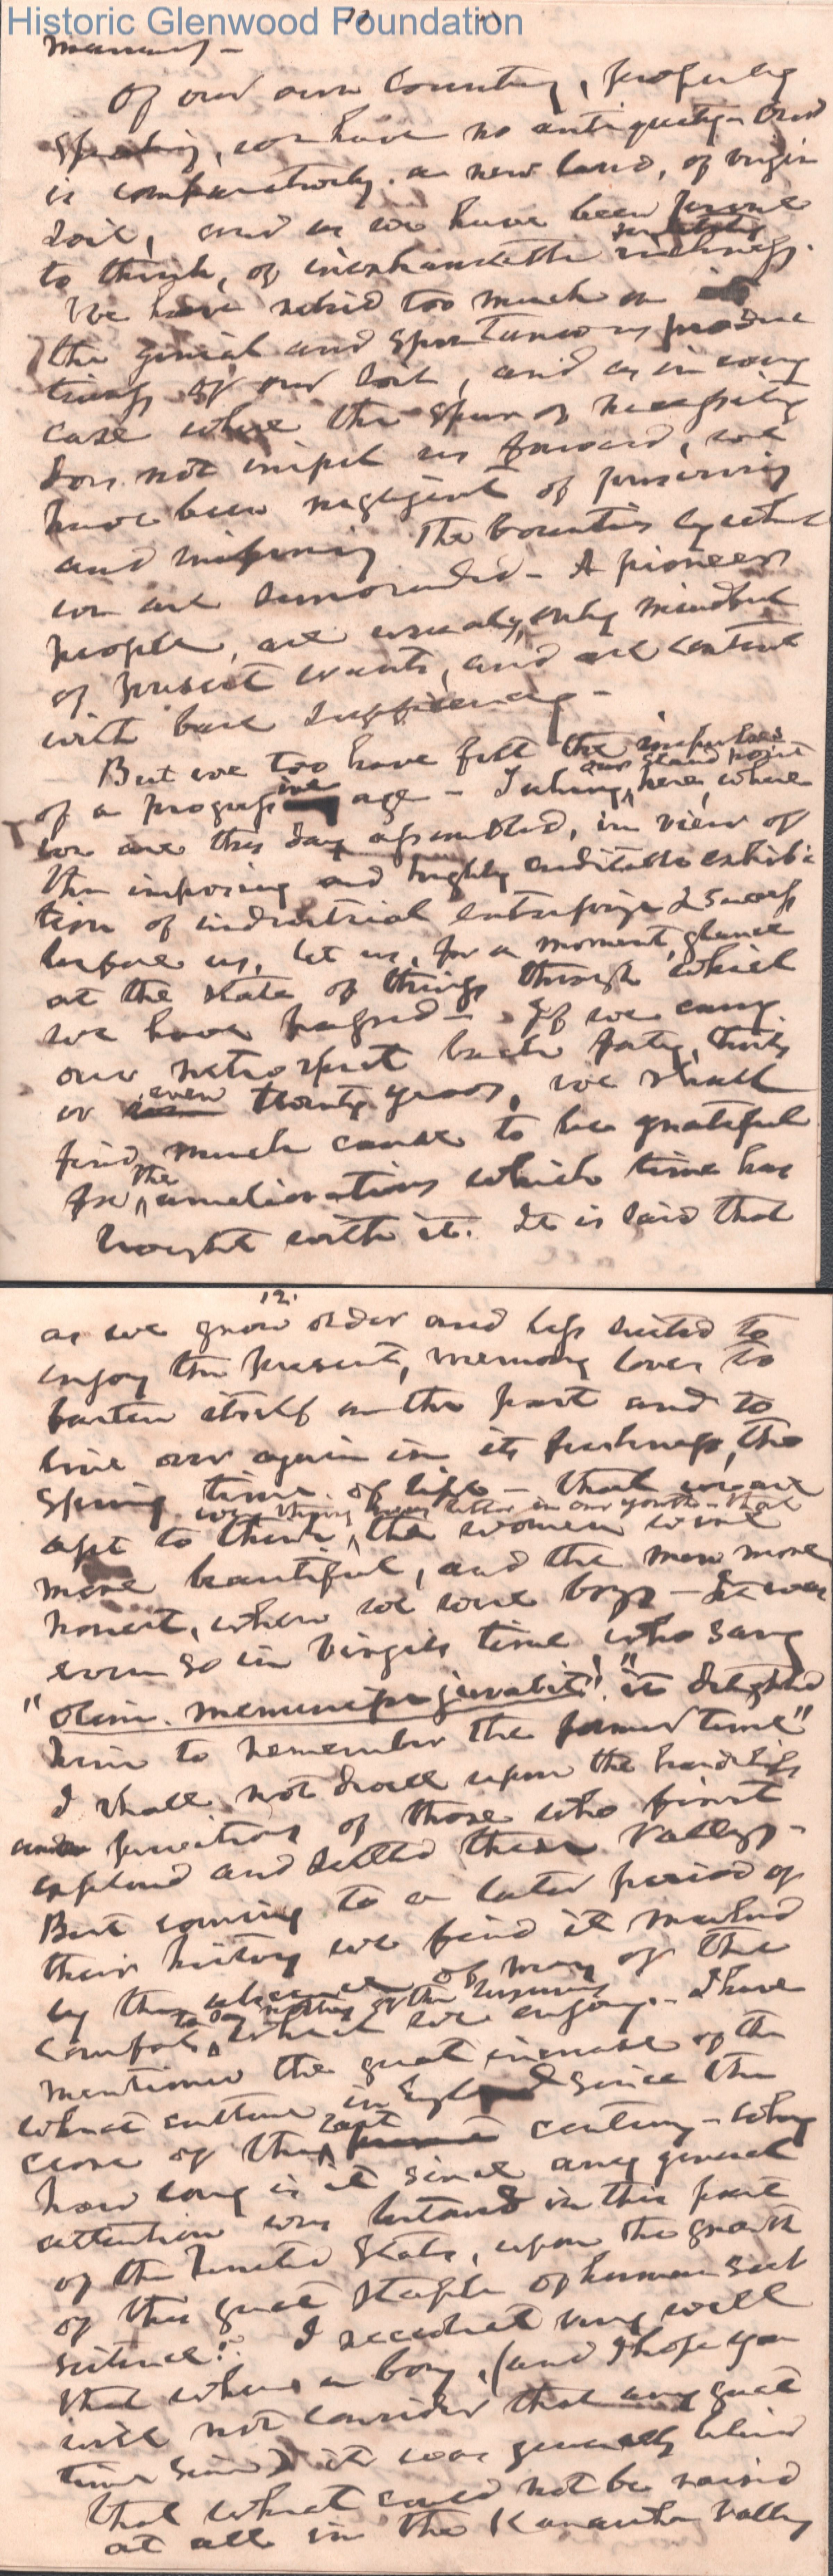 Historic Glenwood Foundation
11
manuring -
Of our own Country, properly
speaking, we have no antiquity - Ours
is comparatively a new land, of virgin
soil, and as we have been prone
to think, of inexhaustible richness.
We have relied too much on
the genial and spontaneous produc
tions of our soil, and as in every
case where the spur of necessity
does not impel us forward, we
have been negligent of preserving
and improving the bounties by which
we are surrounded - A pioneer
people, are usually, only mindful
of present wants, and are content
with bare sufficiency -
But we too have felt the impulses
of a progressive age - Taking our stand point here, where
we are this day assembled, in view of
the imposing and highly creditable exhibi
tion of industrial enterprize & success
before us, let us, for a moment, glance
at the state of things through which
we have passed - If we carry
our retrospect back forty, thirty
or even twenty years, we shall
find much cause to be grateful
for the ameliorations which time has
brought with it. It is said that
12.
as we grow older and less suited to
enjoy the present, memory loves to
fasten itself on the past and to
live over again in its freshness, the
Spring time of life - that we are
apt to think, we things were better in our youth - that the women were
more beautiful, and the men more
honest, when we were boys - It was
even so in Virgils time who sang
"olim meminisse juvabit", "it delighted
him to remember the former time"
I shall not dwell upon the hardships
and privations of those who first
explored and settled these Valleys -
But coming to a later period of
their history we find it marked
by the absence of many of the
comforts, to say nothing of the luxuries which we enjoy - I have
mentioned the great increase of the
wheat culture in England since the
close of the last century - Why
how long is it since any general
attention was bestowed in this part
of the United States, upon the growth
of this great staple of human sub
sistence? I recollect very well
that when a boy, (and I hope you
will not consider that any great
time since) it was generally believed
that wheat could not be raised
at all in the Kanawha Valley